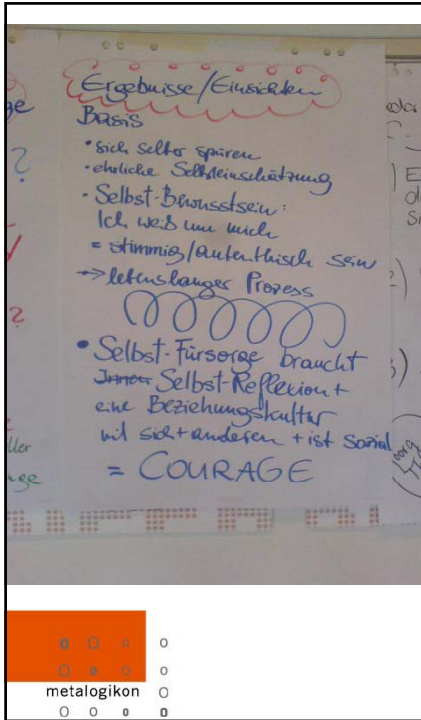 Ergebnisse/Einsichten
Basis
• sich selber spüren
• ehrliche Selbsteinschätzung
• Selbst-Bewusstsein:
Ich weiß um mich
= stimmig/autenthisch sein
→ lebenslanger Prozess
• Selbst-Fürsorge braucht
Selbst-Reflexion +
eine Beziehungskultur
mit sich + anderen + ist sozial
= COURAGE
metalogikon